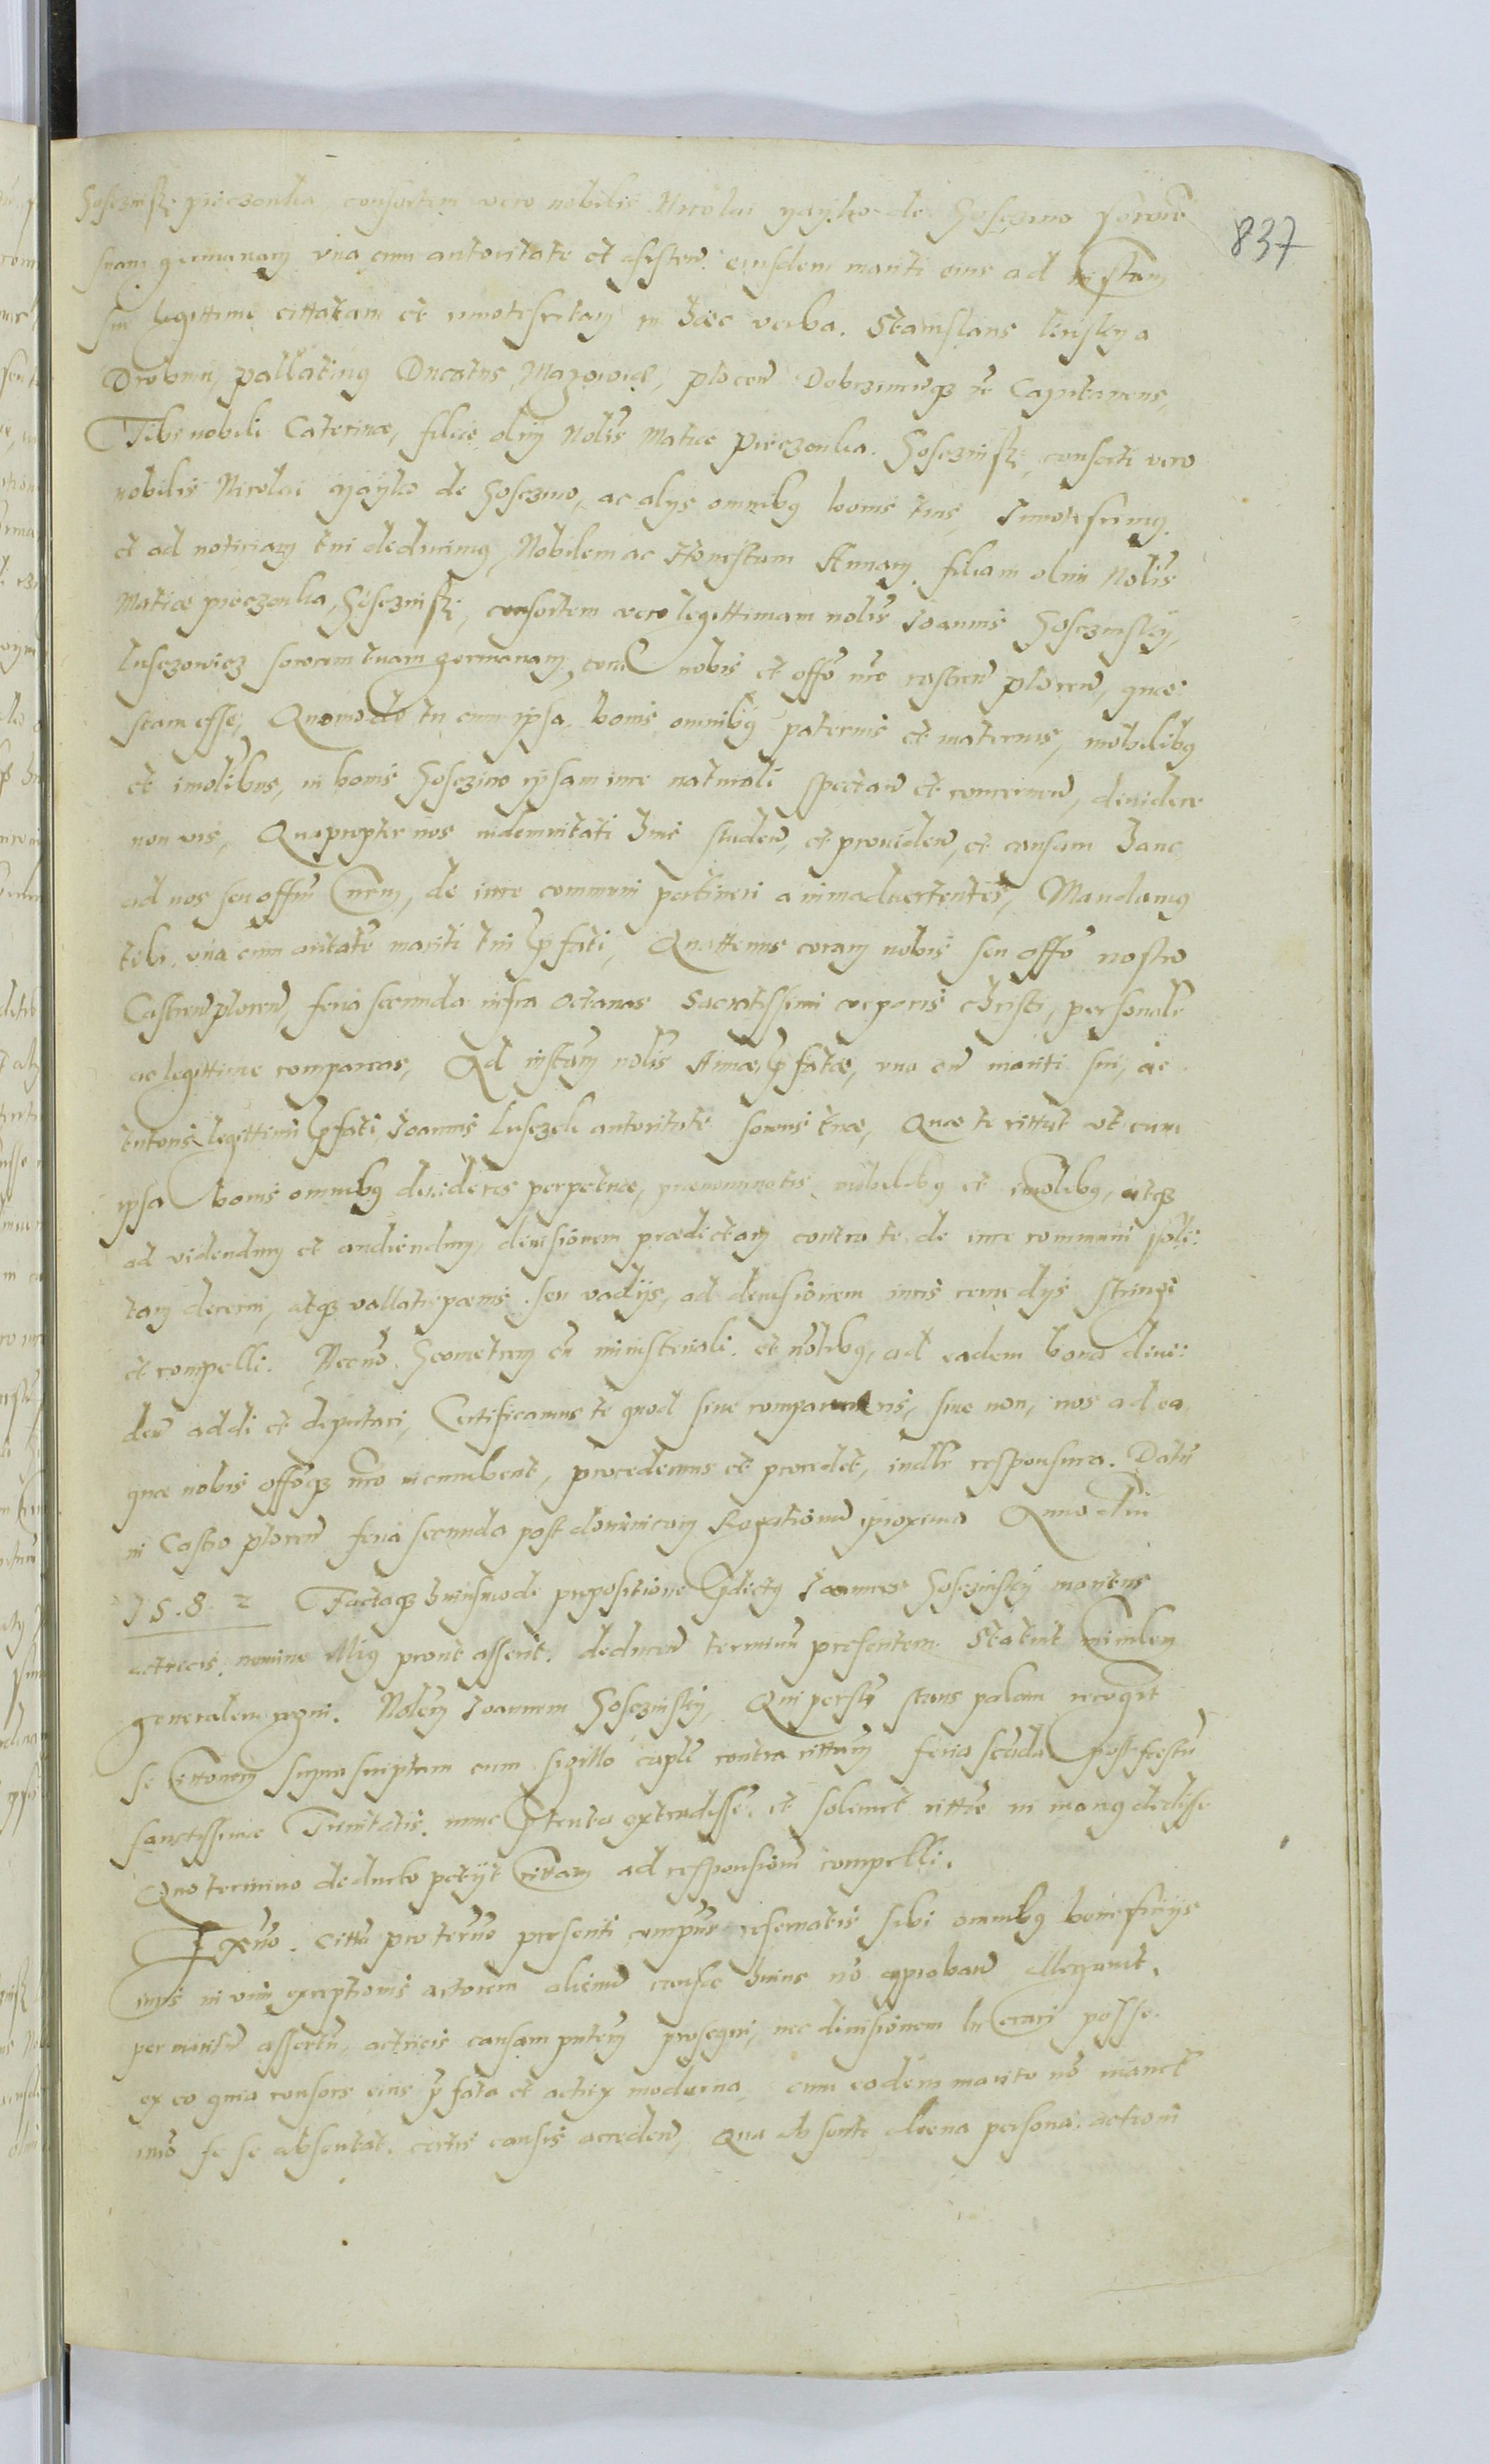 837
Sosczinski pieczonka, consortem vero nobilis Nicolai yayko de Sosczino sororē
suam germanam vna cum autoritate et assisten eiusdem mariti eius ad instām
sui legittime cittatam et innotescitam in hæc verba. Stanislaus Krysky a
Drobnin, pallatinus Ducatus Mazoviæ, plocen Dobrzinenqz etc Capitaneus,
Tibi nobili Caterinæ, filiæ olim Nolis Matiæ Pieczonka Sosczinski, consorti vero
nobilis Nicolai yayko de Sosczino, ac alys omnibus bonis tuis, Innotescimus
et ad noticiam tui deducimus, Nobilem ac Honestam Annam filiam olim Nolis
Matiæ pieczonka, Sosczinski, consortem vero legittimam nolis Joannis Sosczinsky,
Lusczowicz sororem tuam germanam, coram nobis et offo nro castren plocen, ques:
stam esse, Quomodo tu cum ipsa bonis omnibus paternis et maternis, mobilibus
et imolibus, in bonis Sosczino ipsam iure naturali spectan et concernen, dividere
non vis, Quapropter nos indemnitati huius studen, et providen, et causam hanc
ad nos seu offm nrm, de iure communi pertineri animadvertentes, Mandamus
tibi vna cum autate mariti tui pfati, Quattenus coram nobis seu offo nostro
Castren plocen, feria secunda infra octavas Sacratissimi corporis christi, personalr
ac legittime compareas, Ad instām nolis Annæ pfatæ, vna cum mariti sui, ac
tutoris legittimi pfati Joannis Lusczek autoritate sororis tuæ, Quæ te cittat vt cum
ipsa bonis omnibus divideres perpetuæ, prænominatis mobilibus et imolibus, atqz
ad videndum et audiendum, divisionem prædictam contra te de iure communi soli:
tam decerni, atqz vallatis pænis seu vadiis, ad divisionem iuris remedys stringi
et compelli. Necno Geometram cū ministeriali et nolibus, ad eadem bona divi:
den addi et deputari, Certificamus te quod sive comparueris, sive non, nos ad ea
quæ nobis offoqz nro incumbent, procedemus et procedet, iudlr responsura. Datū
in Castro plocen feria secunda post dominicam Rogationum proxima Anno dni
1 5 . 8 . 2 Factaqz huiusmodi propositione pdictus Joannes Sosczinsky maritus
actricis, nomine illius prout asserit. deducen terminum presentem Statuit minlem
generalem regni. Nolem Joannem Sosczinsky, Qui personalr stans palam recogut
se cittonem suprascriptam cum sigillo caple contra cittam feria scda post festū
sanctissimæ Trinitatis nunc pterita extradisse, et solemet citte in manus dedisse
Quo termino deducto petyt cittam ad responsionem compelli.
Ex aduo. Citta pro termo presenti compns reservatis sibi omnibus beneficiis
iuris in vim exceptionis actorem alienum causæ huius no approban allegavit,
per maritū assertū, actricis causam pntem prosequi, nec divisionem lucrari posse
ex eo quia consors eius pfata et actrix moderna cum eodem marito no manet
imo se se absentat, certis causis acceden, Qua absente aliena persona actioni